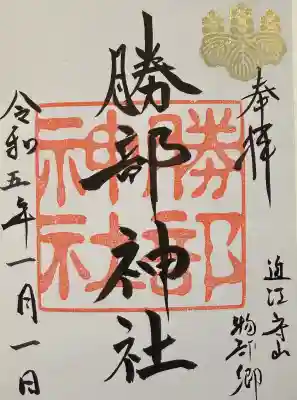 奉拝
近江守山
物部郷
勝部神社
勝部
神社
令和五年一月一日